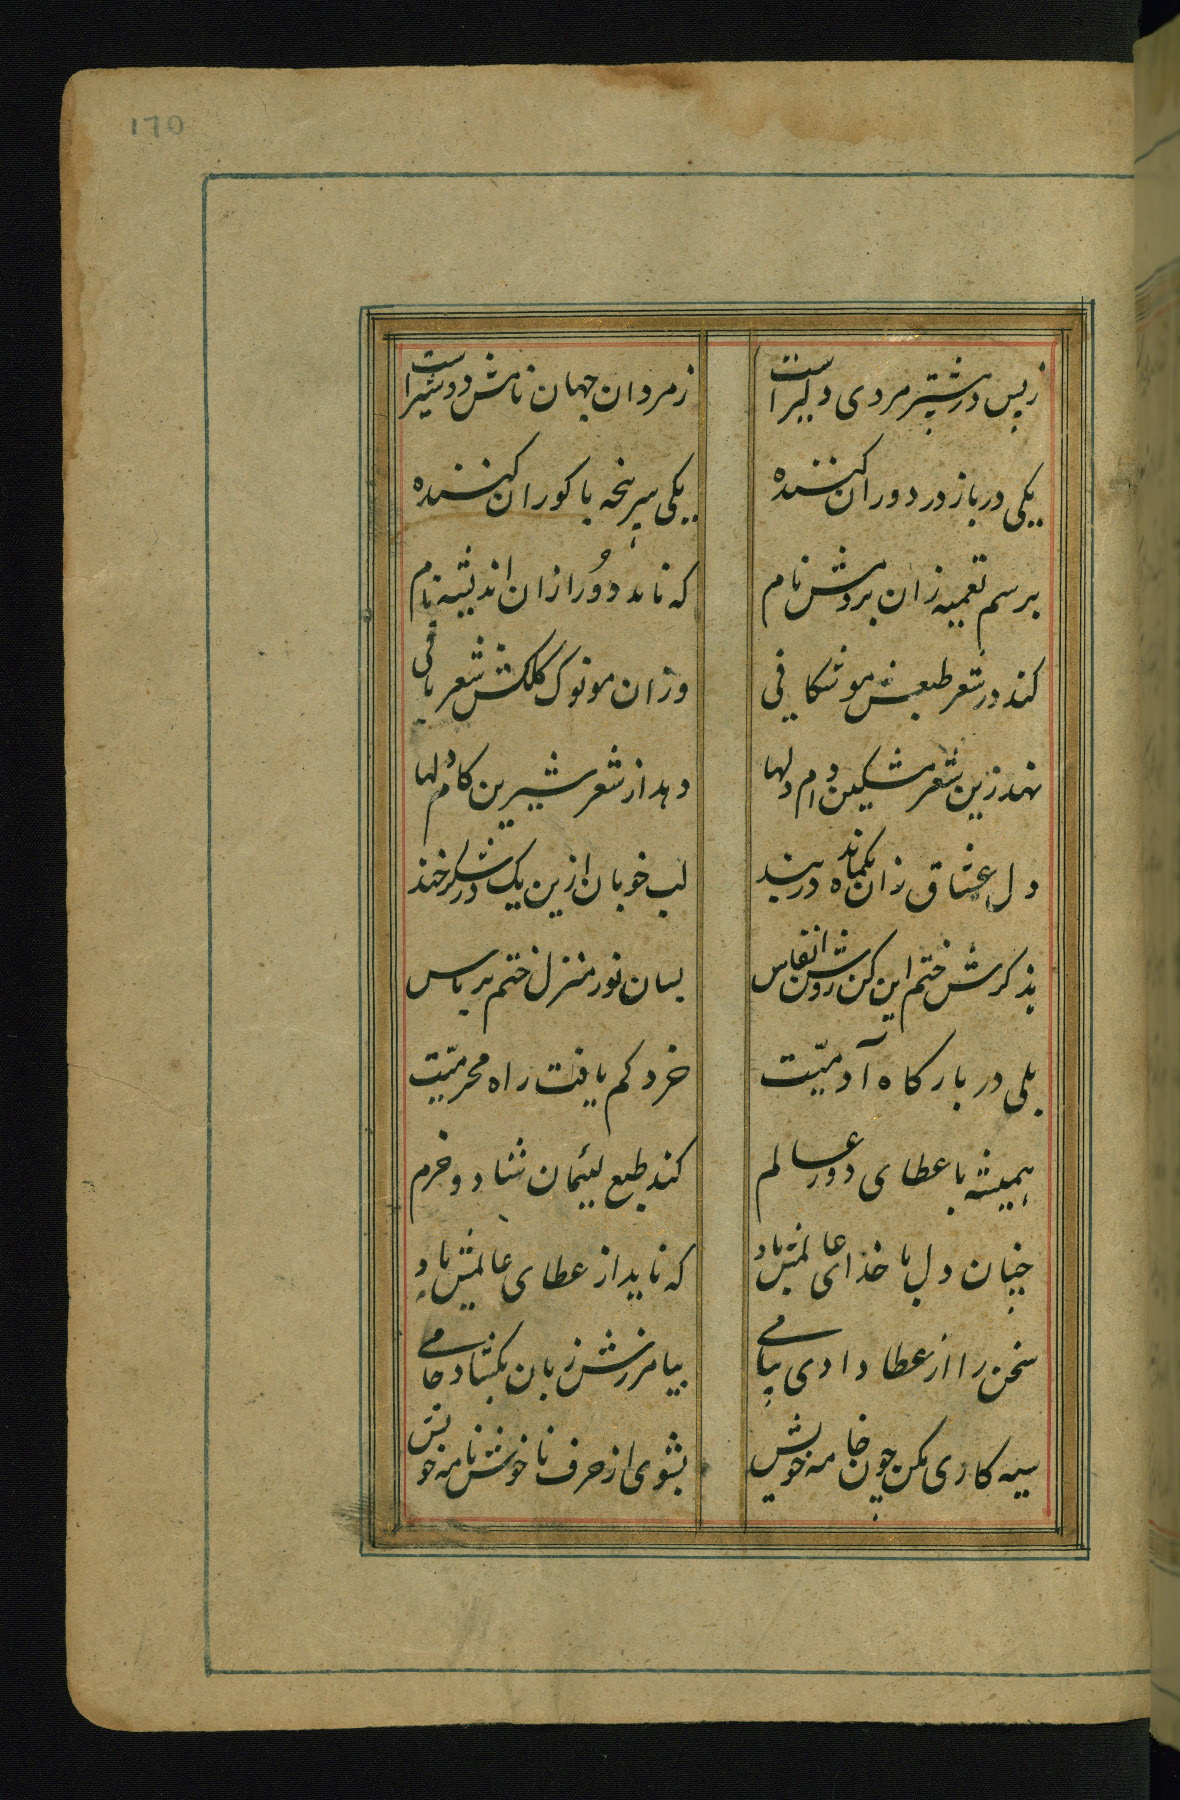 170
ز پس در شپّر مردی دلیر است زمردان جهان نامش دو شیر است
یکی در باز در دوران کننده یکی سرپنجه با کوران کننده
برسم تعمیه زان بردمش نام که ناید دور ازان اندیشه نام
کند در شعر طبعش موشکافی وزان مو نوک کلکش شعربافی
نهد زین شعر مشکین دام دلها دهد از شعر شیرین کام دلها
دل عشاق زان یکماند در بند لب خوبان ازین یک در شکرخند
بذکرش ختم این کن روشن انفاس بسان نور منزل ختم بر ناس
بلی در بارکاه آدمیّت خرد کم یافت راه محرمیّت
همیشه با عطای دور عالم کند طبع لئیمان شاد و خرم
چنان دل با خدای عالمش باد که ناید از عطای عالمش یاد
سخن را از عطا دادی پیامی بیامرزش زبان بکشاد جامی
سیه کاری مکن چون خامه خویش بشوی از حرف ناخوش نامه خویش